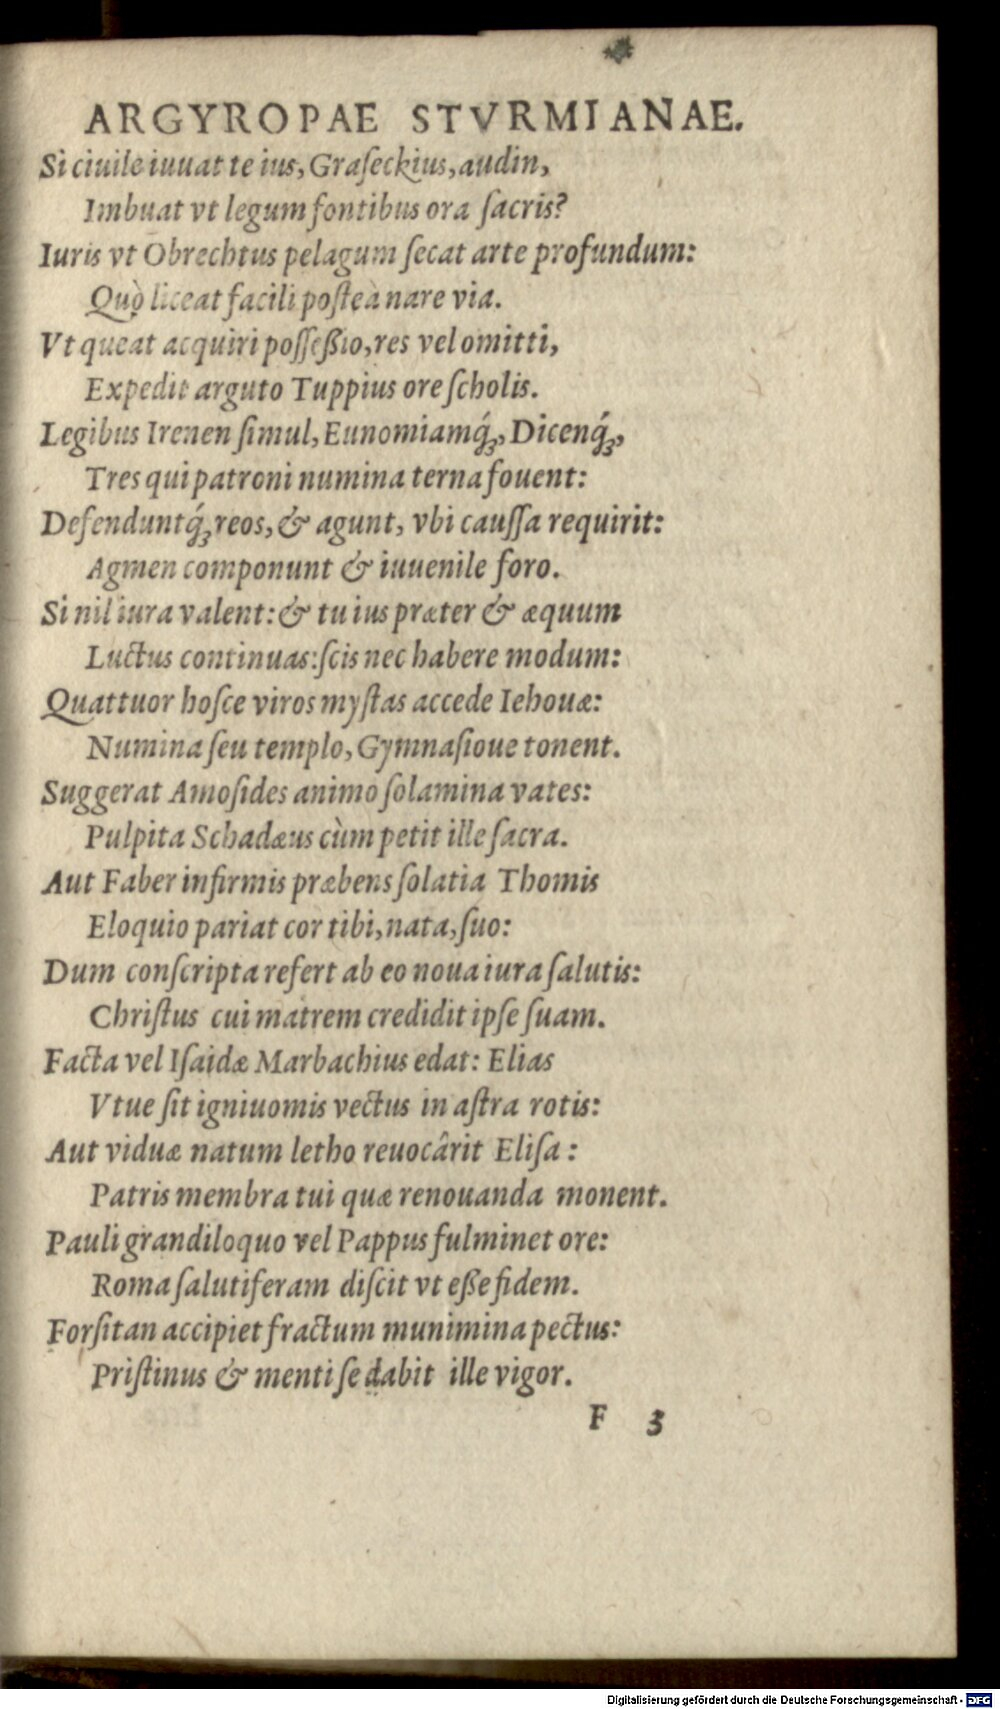 ARGYROPAE STVRMIANAE.
Si ciuile iuuat te ius, Graſeckius, audin,
Imbuat vt legum fontibus ora ſacris?
Iuris vt Obrechtus pelagum ſecat arte profundum:
Quò liceat facili poſteà nare via.
Vt queat acquiri poſſeßio, res vel omitti,
Expedit arguto Tuppius ore ſcholis.
Legibus Irenen ſimul, Eunomiamq́ꝫ, Dicenq́ꝫ,
Tres qui patroni numina terna fouent:
Defenduntq́ꝫ reos, & agunt, vbi cauſſa requirit:
Agmen componunt & iuuenile foro.
Si nil iura valent: & tu ius præter & æquum
Luctus continuas: ſcis nec habere modum:
Quattuor hoſce viros myſtas accede Iehouæ:
Numina ſeu templo, Gymnaſioue tonent.
Suggerat Amoſides animo ſolamina vates:
Pulpita Schadæus cùm petit ille ſacra.
Aut Faber infirmis præbens ſolatia Thomis
Eloquio pariat cor tibi, nata, ſuo:
Dum conſcripta refert ab eo noua iura ſalutis:
Chriſtus cui matrem credidit ipſe ſuam.
Facta vel Iſaidæ Marbachius edat: Elias
Vtue ſit igniuomis vectus in aſtra rotis:
Aut viduæ natum letho reuocârit Eliſa:
Patris membra tui quæ renouanda monent.
Pauli grandiloquo vel Pappus fulminet ore:
Roma ſalutiferam diſcit vt eße fidem.
Forſitan accipiet fractum munimina pectus:
Priſtinus & menti ſe dabit ille vigor.
F 3
Digitalisierung gefördert durch die Deutsche Forschungsgemeinschaft - DFG